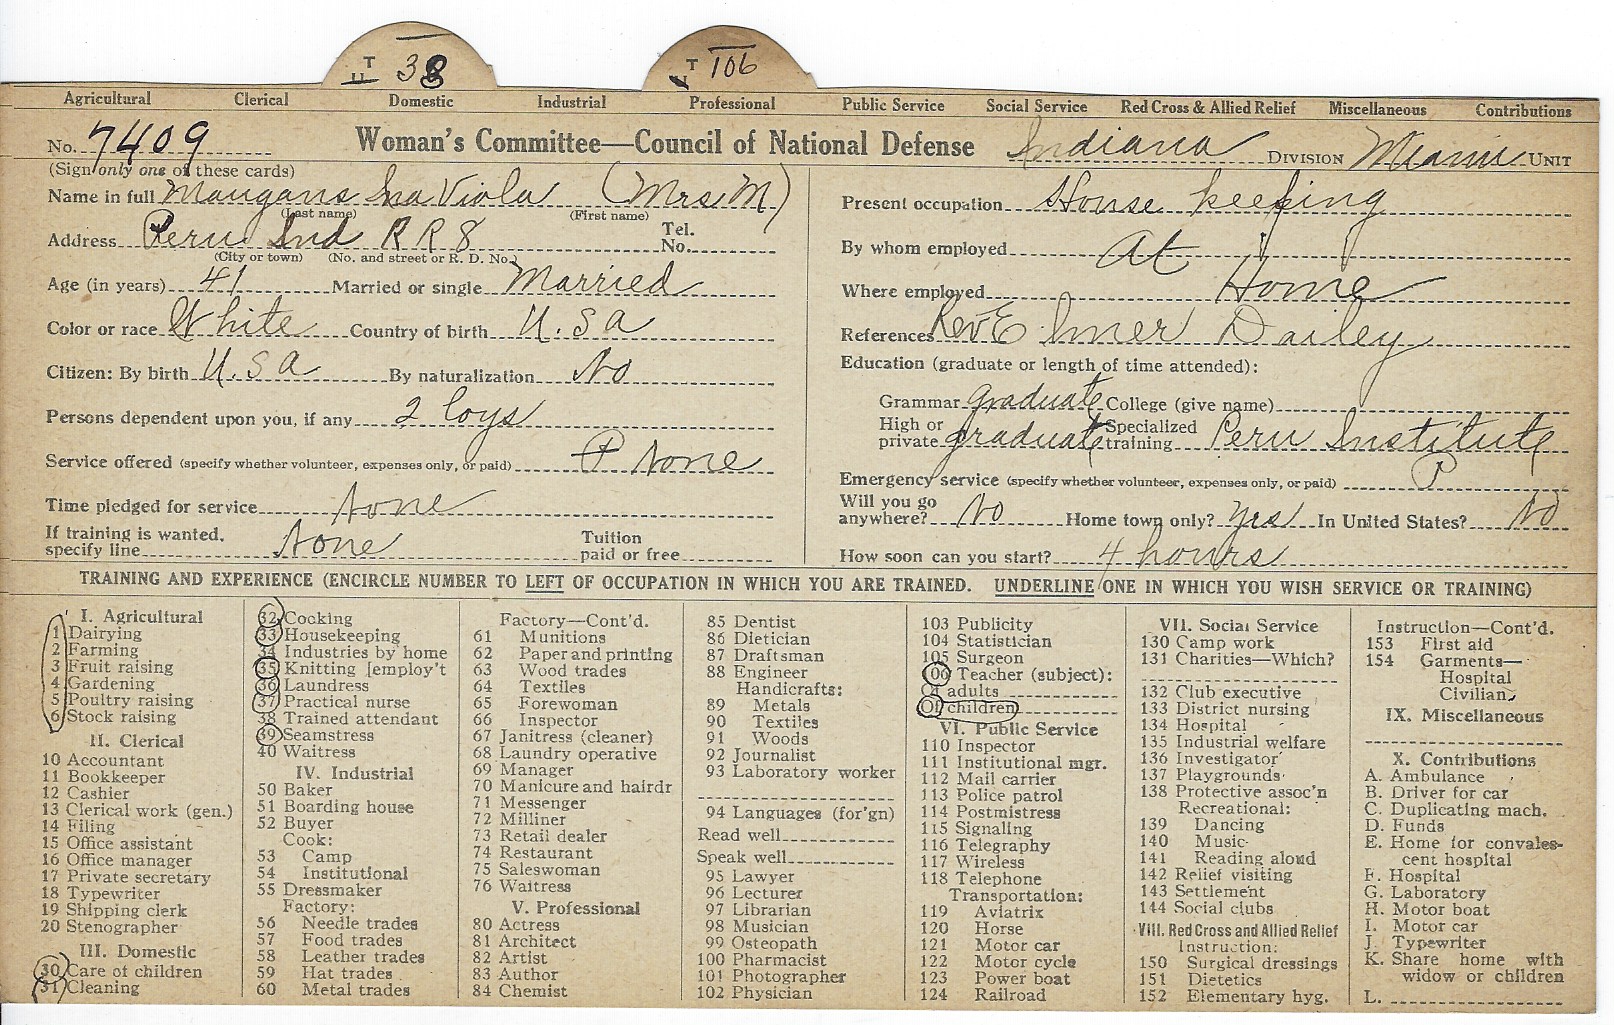 T U 38 T U 106
Agricultural Clerical Domestic Industrial Professional Public Service Social Service Red Cross & Allied Relief Miscellaneous Contributions
No. 7409 Woman's Committee—Council of National Defense Indiana DIVISION Miami UNIT
(Sign only one of these cards)
Name in full Maugans Ina Viola (Mrs M)
(Last name) (First name)
Address Peru Ind R R 8 Tel. No.
(City or town) (No. and street or R. D. No.)
Age (in years) 41 Married or single Married
Color or race White Country of birth U.S a
Citizen: By birth U.S a By naturalization No
Persons dependent upon you, if any 2 boys
Service offered (specify whether volunteer, expenses only, or paid) P None
Time pledged for service None
If training is wanted, specify line None Tuition paid or free
Present occupation House keeping
By whom employed At
Where employed Home
References Rev Elmer Dailey
Education (graduate or length of time attended):
Grammar graduate College (give name)
High or private graduate Specialized training Peru Institute
Emergency service (specify whether volunteer, expenses only, or paid) P
Will you go anywhere? No Home town only? Yes In United States? No
How soon can you start? 4 hours
TRAINING AND EXPERIENCE (ENCIRCLE NUMBER TO LEFT OF OCCUPATION IN WHICH YOU ARE TRAINED. UNDERLINE ONE IN WHICH YOU WISH SERVICE OR TRAINING)
I. Agricultural
1 Dairying
2 Farming
3 Fruit raising
4 Gardening
5 Poultry raising
6 Stock raising
II. Clerical
10 Accountant
11 Bookkeeper
12 Cashier
13 Clerical work (gen.)
14 Filing
15 Office assistant
16 Office manager
17 Private secretary
18 Typewriter
19 Shipping clerk
20 Stenographer
III. Domestic
30 Care of children
31 Cleaning
32 Cooking
33 Housekeeping
34 Industries by home
35 Knitting [employ't
36 Laundress
37 Practical nurse
38 Trained attendant
39 Seamstress
40 Waitress
IV. Industrial
50 Baker
51 Boarding house
52 Buyer
Cook:
53 Camp
54 Institutional
55 Dressmaker
Factory:
56 Needle trades
57 Food trades
58 Leather trades
59 Hat trades
60 Metal trades
Factory—Cont'd.
61 Munitions
62 Paper and printing
63 Wood trades
64 Textiles
65 Forewoman
66 Inspector
67 Janitress (cleaner)
68 Laundry operative
69 Manager
70 Manicure and hairdr
71 Messenger
72 Milliner
73 Retail dealer
74 Restaurant
75 Saleswoman
76 Waitress
V. Professional
80 Actress
81 Architect
82 Artist
83 Author
84 Chemist
85 Dentist
86 Dietician
87 Draftsman
88 Engineer
Handicrafts:
89 Metals
90 Textiles
91 Woods
92 Journalist
93 Laboratory worker
94 Languages (for'gn)
Read well
Speak well
95 Lawyer
96 Lecturer
97 Librarian
98 Musician
99 Osteopath
100 Pharmacist
101 Photographer
102 Physician
103 Publicity
104 Statistician
105 Surgeon
106 Teacher (subject):
Of adults
Of children
VI. Public Service
110 Inspector
111 Institutional mgr.
112 Mail carrier
113 Police patrol
114 Postmistress
115 Signaling
116 Telegraphy
117 Wireless
118 Telephone
Transportation:
119 Aviatrix
120 Horse
121 Motor car
122 Motor cycle
123 Power boat
124 Railroad
VII. Social Service
130 Camp work
131 Charities—Which?
132 Club executive
133 District nursing
134 Hospital
135 Industrial welfare
136 Investigator
137 Playgrounds
138 Protective assoc'n
Recreational:
139 Dancing
140 Music
141 Reading aloud
142 Relief visiting
143 Settlement
144 Social clubs
VIII. Red Cross and Allied Relief
Instruction:
150 Surgical dressings
151 Dietetics
152 Elementary hyg.
Instruction—Cont'd.
153 First aid
154 Garments—
Hospital
Civilian
IX. Miscellaneous
X. Contributions
A. Ambulance
B. Driver for car
C. Duplicating mach.
D. Funds
E. Home for convales-
cent hospital
F. Hospital
G. Laboratory
H. Motor boat
I. Motor car
J. Typewriter
K. Share home with
widow or children
L.